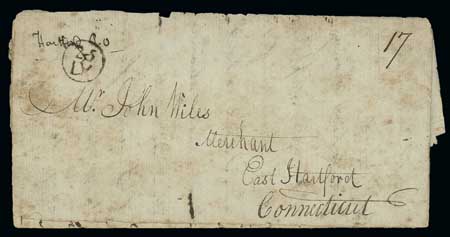 Hartford P.O
17
Mr. John Wiles
Merchant
East Hartford
Connecticut